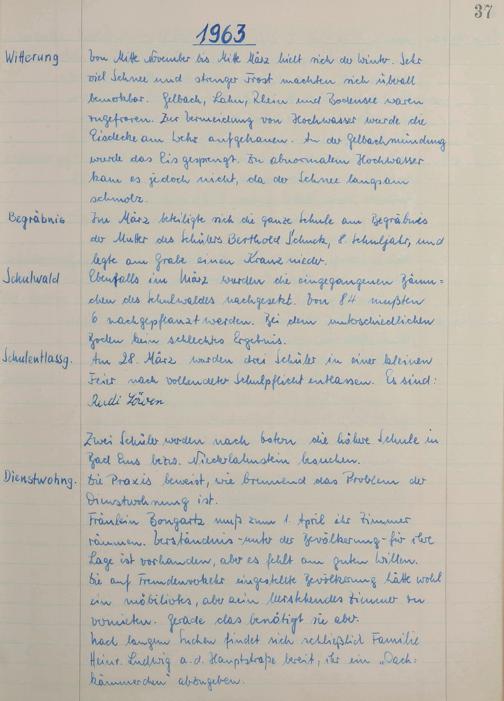 37
1963
Witterung
Von Mitte November bis Mitte März hielt sich der Winter. Sehr
viel Schnee und strenger Frost machten sich überall
bemerkbar. Gelbach, Lahn, Rhein und Bodensee waren
zugefroren. Zur Vermeidung von Hochwasser wurde die
Eisdecke am Wehr aufgehauen. An der Gelbachmündung
wurde das Eis gesprengt. Zu abnormalem Hochwasser
kam es jedoch nicht, da der Schnee langsam
schmolz.
Begräbnis
Im März beteiligte sich die ganze Schule am Begräbnis
der Mutter des Schülers Berthold 8. Schuljahr, und
legte am Grabe einen Kranz nieder.
Schulwald
Ebenfalls im März wurden die eingegangenen Bäum=
chen des Schulwaldes nachgesetzt. Von 84 mußten
6 nachgepflanzt werden. Bei dem unterschiedlichen
Boden kein schlechtes Ergebnis.
Schulentlassg.
Am 28. März wurden drei Schüler in einer kleinen
Feier nach vollendeter Schulpflicht entlassen. Es sind:
Rudi Löwen
Zwei Schüler werden nach Ostern die höhere Schule in
Bad Ems bezw. Niederlahnstein besuchen.
Dienstwohng.
Die Praxis beweist, wie brennend das Problem der
Dienstwohnung ist.
Fräulein Bongartz muß zum 1. April ihr Zimmer
räumen. Verständnis unter der Bevölkerung für ihre
Lage ist vorhanden, aber es fehlt am guten Willen.
Die auf Fremdenverkehr eingestellte Bevölkerung hätte wohl
ein möbliertes, aber kein leerstehendes Zimmer zu
vermieten. Gerade das benötigt sie aber.
Nach langem Suchen findet sich schließlich Familie
Heinr. Ludwig a.d. Hauptstraße bereit, ihr ein „Dach-
kämmerchen" abzugeben.